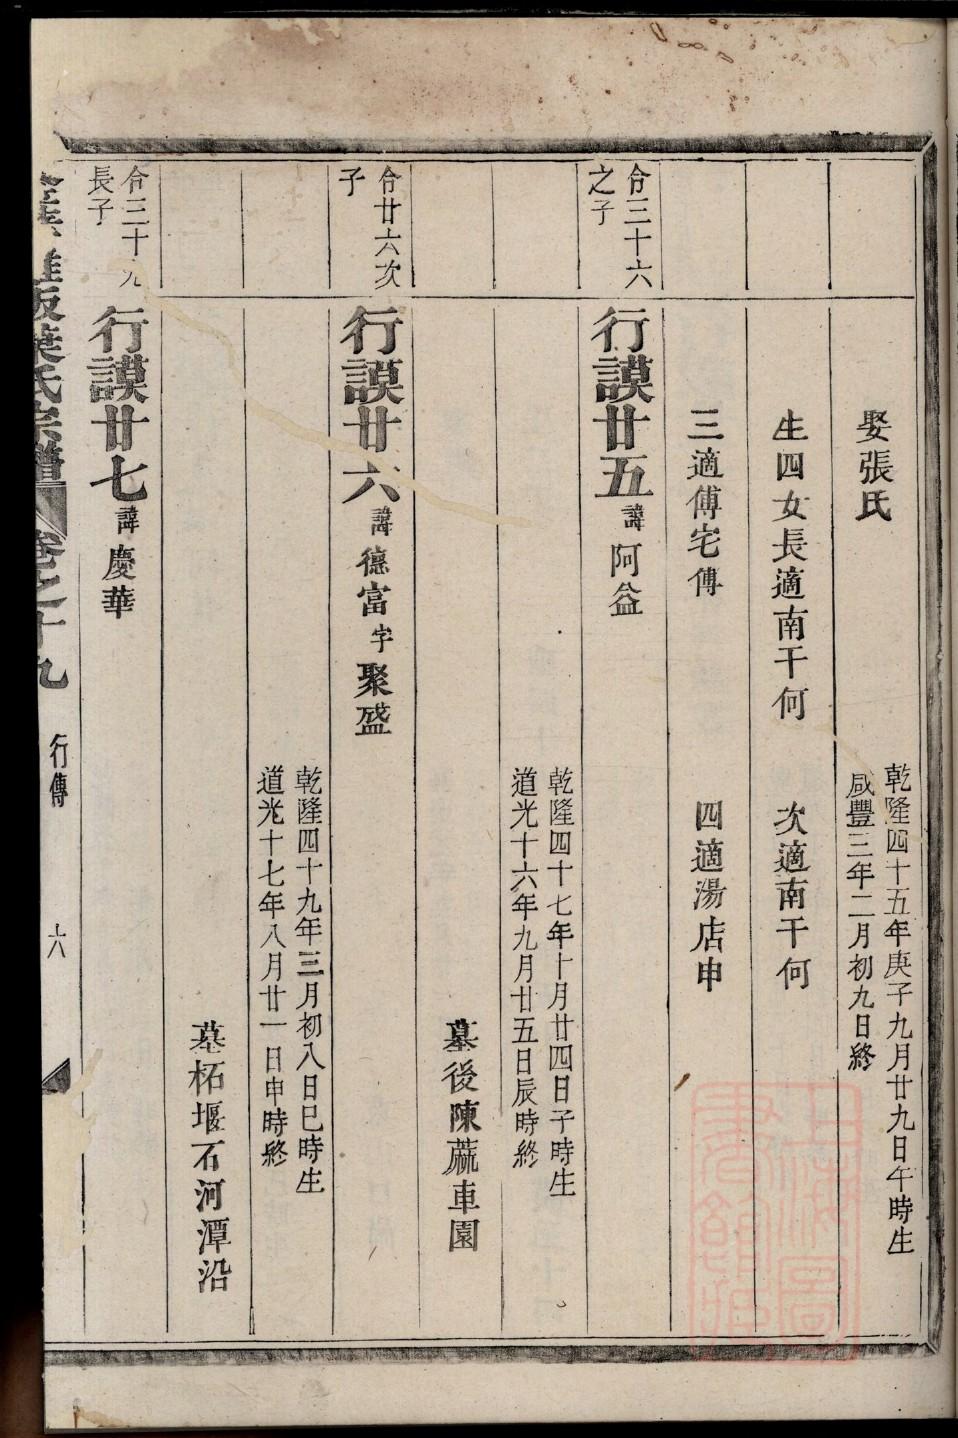 娶張氏
乾隆四十五年庚子九月廿九日午時生
咸豐三年二月初九日終
生四女長適南干何
次適南干何
三適傅宅傅
四適湯店申
合三十六
之子
行謨廿五諱阿益
乾隆四十七年十月廿四日子時生
道光十六年九月廿五日辰時終
墓後陳蔴車園
合廿六次
子
行謨廿六諱德富字聚盛
乾隆四十九年三月初八日巳時生
道光十七年八月廿一日申時終
墓柘堰石河潭沿
合三十九
長子
行謨廿七諱慶華
葉氏宗譜
卷之十九
行傳
六
上海圖書館藏